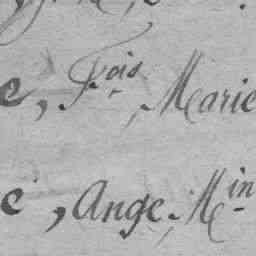 e, Fois Marie
e, Ange Min